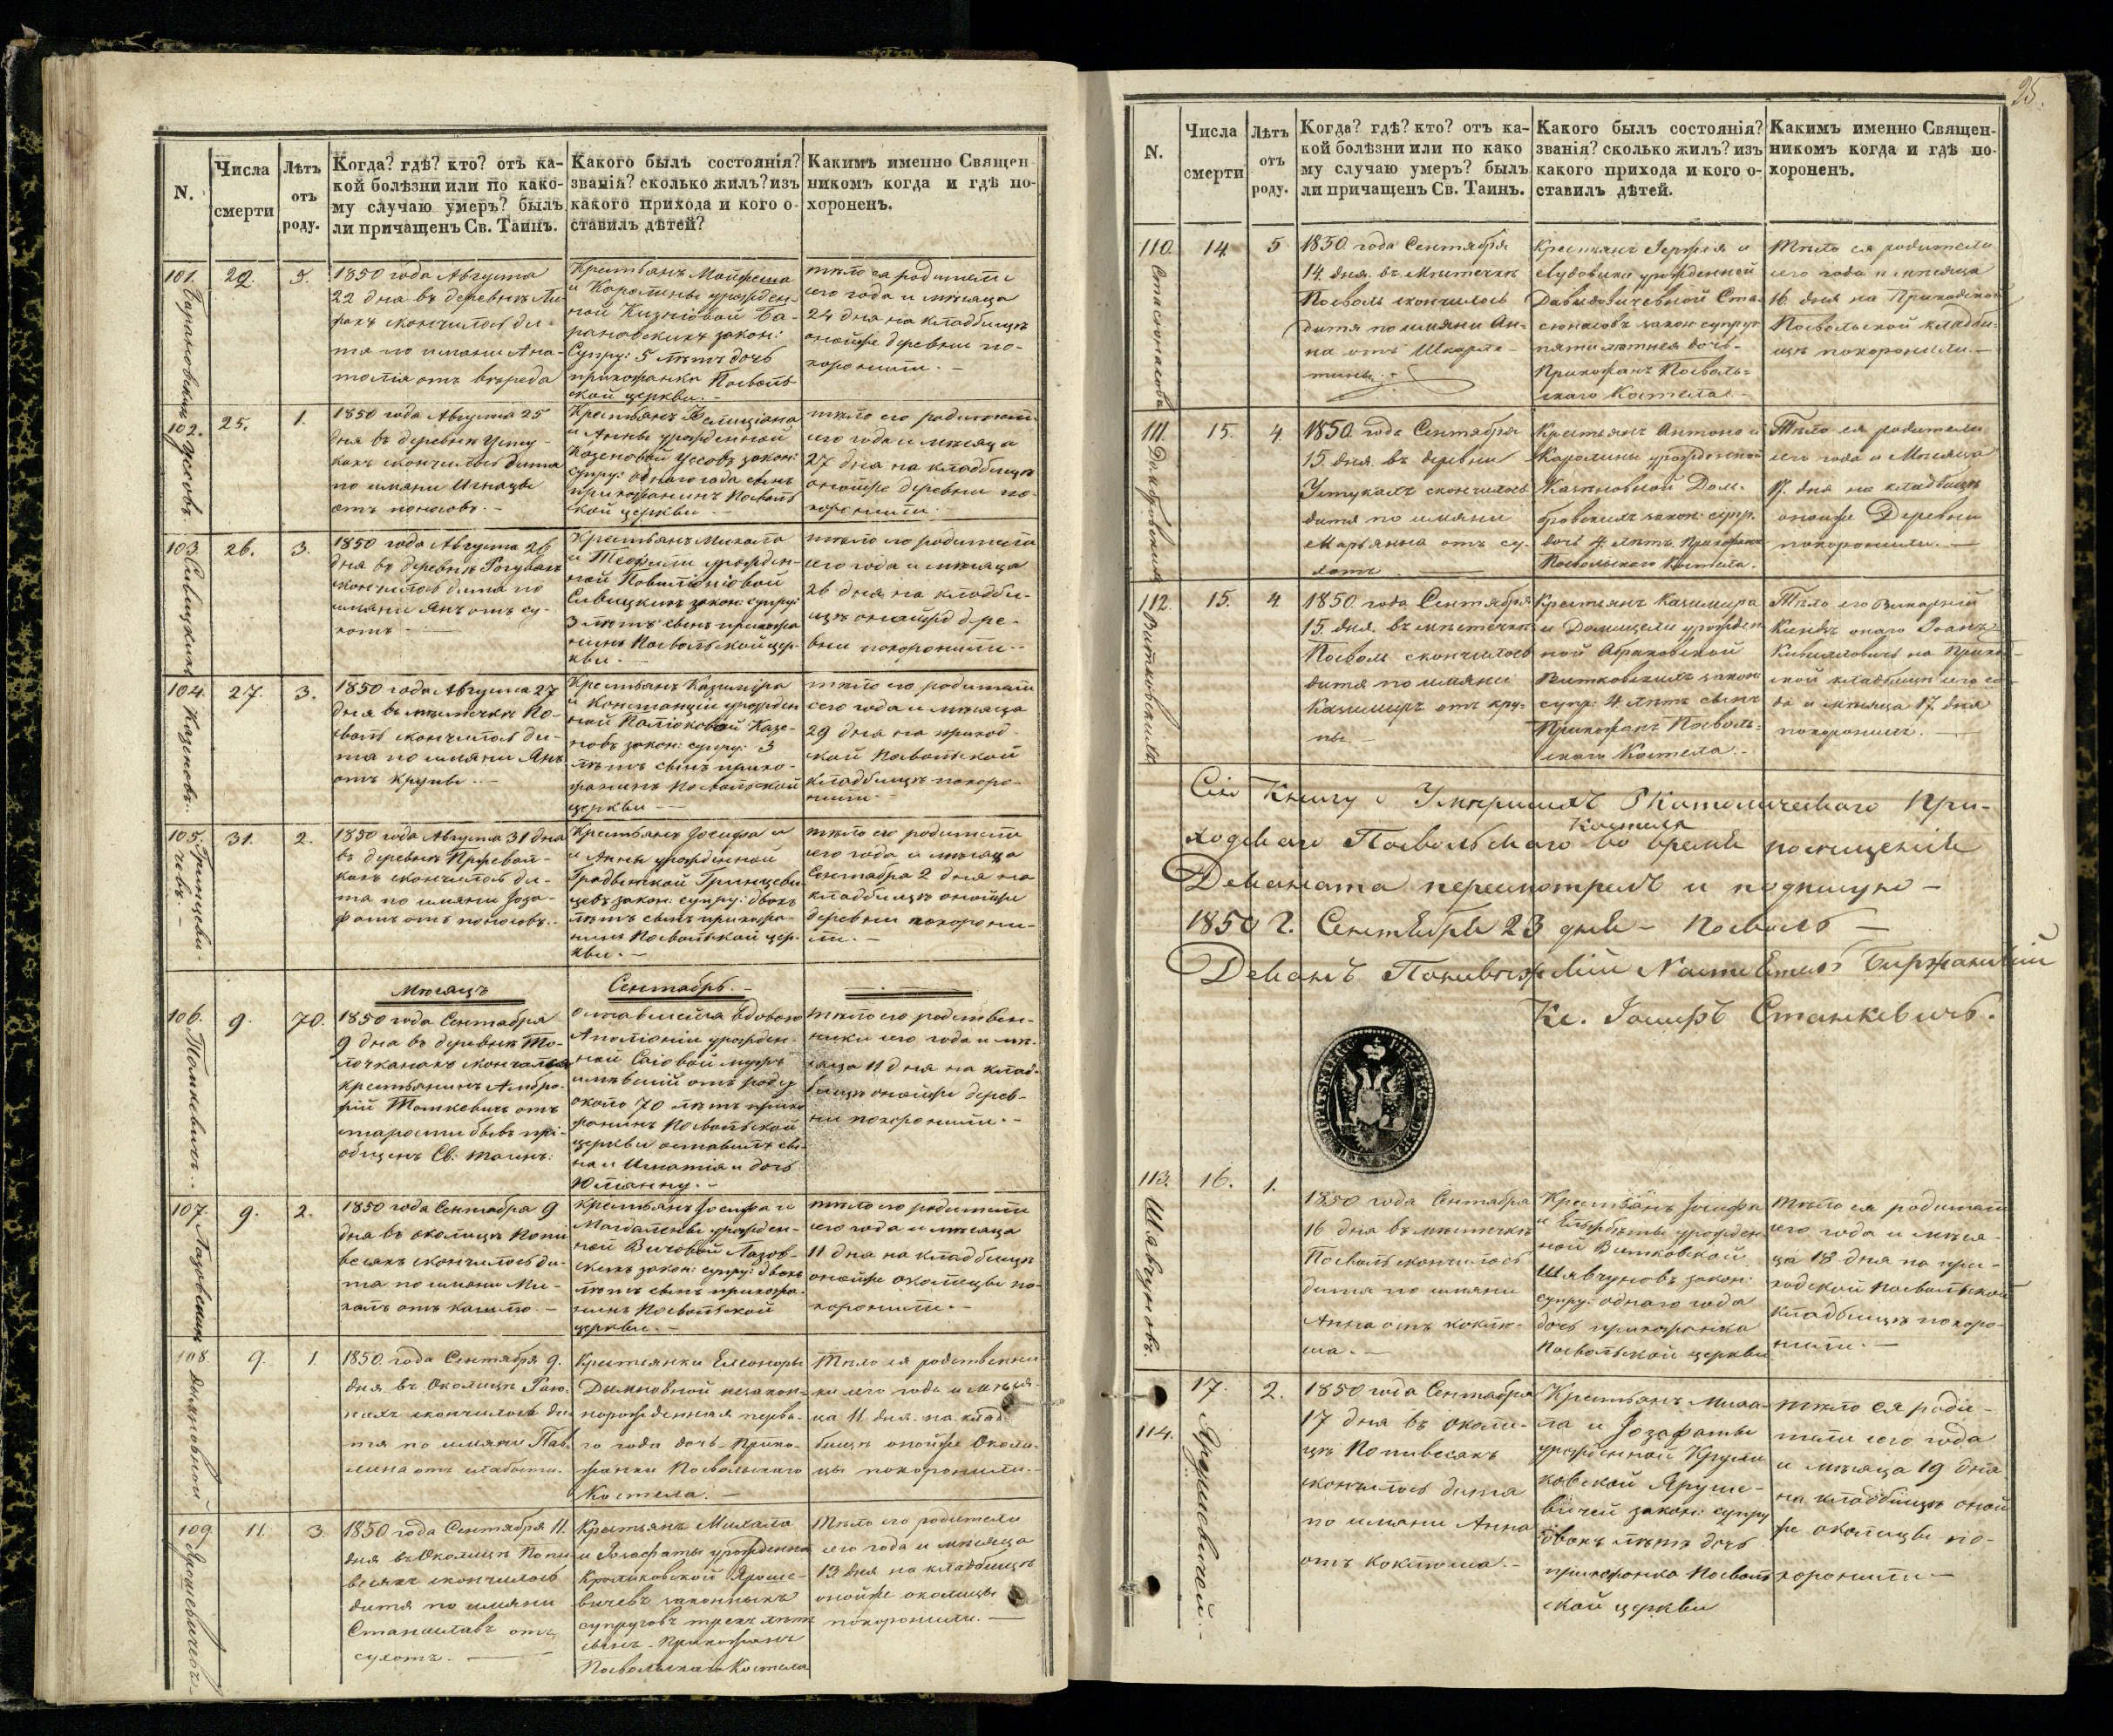 N.
Числа смерти
Лѣтъ отъ роду.
Когда? гдѣ? кто? отъ ка-
кой болѣзни или по како-
му случаю умеръ? былъ
ли причащенъ Св. Таинъ.
Какого былъ состоянія?
званія? сколько жилъ? изъ
какого прихода и кого о-
ставилъ дѣтей?
Какимъ именно Священ-
никомъ когда и гдѣ по-
хороненъ.
101.
22.
5.
1850 года Августа
22 дня въ деревнѣ
скончилось ди-
тя по имяни Ана-
толія отъ вереда
Крестьянъ
и Каролины урожден-
ной Ба-
рановскихъ закон:
Супру: 5 лѣтъ дочь
прихожанка Посволь-
ской церкви. -
тѣло ея родители
сего года и мѣсяца
24 дня на кладбищѣ
онойже деревни по-
хоронили. -
102. Усовъ.
25.
1.
1850 года Августа 25
дня въ деревнѣ Усту-
кахъ скончилось дитя
по имяни Игнацы
отъ поносовъ. -
Крестьянъ Фелиціана
и Анны урожденной
Казеновой Усовъ закон:
супру: одного года сынъ
прихожанинъ Посволь-
ской церкви -
тѣло его родители
сего года и мѣсяца
27 дня на кладбищѣ
онойже деревни по-
хоронили.
103. Сивицкихъ
26.
3.
1850 года Августа 26
дня въ деревнѣ
скончилось дитя по
имяни Янъ отъ су-
хотъ -
Крестьянъ Михала
и Теофили урожден-
ной
Сивицкихъ закон: супру:
3 лѣтъ сынъ прихожа-
нинъ Посвольской цер-
кви. -
тѣло его родители
сего года и мѣсяца
28 дня на кладби-
щѣ онойже дере-
вни похоронили. -
104. Казеновъ.
27.
3.
1850 года Августа 27
дня въ мѣстечкѣ По-
сволѣ скончилось ди-
тя по имяни Янъ
отъ крупы. -
Крестьянъ Казиміра
и Констанціи урожден-
ной Палюковой Казе-
новъ закон: супру: 3
лѣтъ сынъ прихо-
жанинъ Посвольской
церкви -
тѣло его родители
сего года и мѣсяца
29 дня на приход-
ской Посвольской
кладбищѣ похоро-
нили -
105. Гринцеви-
чевъ. -
31.
2.
1850 года Августа 31 дня
въ деревнѣ
скончилось ди-
тя по имяни Іоза-
фатъ отъ поносовъ. -
Крестьянъ Іосифа и
и Анны урожденной
Гринцеви-
чевъ закон: супру: двохъ
лѣтъ сынъ прихожа-
нинъ Посвольской цер-
кви. -
тѣло его родители
сего года и мѣсяца
Сентября 2 дня на
кладбищѣ онойже
деревни похорони-
ли. -
Мѣсяцъ Сентябрь. -
106. Томкевичъ. -
9.
70.
1850 года Сентября
9 дня въ деревнѣ
скончался
крестьянинъ Амбро-
жій Томкевичъ отъ
старости бывъ прі-
общенъ Св: таинъ:
оставшейся вдовою
Аполіоніи урожден-
ной мужъ
имѣвшій отъ роду
около 70 лѣтъ прихо-
жанинъ Посвольской
церкви оставилъ сы-
на Игнатія и дочь
Юліанну. -
тѣло его родствен-
ники сего года и мѣ-
сяца 11 дня на клад-
бищѣ онойже дерев-
ни похоронили. -
107. Лазовскихъ
9.
2.
1850 года Сентября 9
дня въ околицѣ Попи-
веcахъ скончилось ди-
тя по имяни Ми-
халъ отъ кашлю. -
Крестьянъ Іосифа и
Магдалены урожден-
ной Лазов-
скихъ закон: супру: двохъ
лѣтъ сынъ прихожа-
нинъ Посвольской
церкви. -
тѣло его родители
сего года и мѣсяца
11 дня на кладбищѣ
онойже околицы по-
хоронили. -
108. Дымновной
9.
1
1850 года Сентября 9.
дня въ Околицѣ
скончилось ди-
тя по имяни Пав-
лина отъ слабости.
Крестьянки Елеоноры
Дымновной незакон-
норожденная перва-
го года дочь - Прихо-
жанки Посвольскаго
Костела. -
Тѣло ея родственни-
ки сего года и мѣся-
ца 11 дня на клад-
бищѣ онойже Околи-
цы похоронили. -
109. Ярошевичевъ.
11.
3.
1850 года Сентября 11.
дня въ Околицѣ Попи-
весяхъ скончилось
дитя по имяни
Станиславъ отъ
сухотъ. -
Крестьянъ Михала
и Іозафаты урожденной
Кроликовской Яроше-
вичевъ законныхъ
супруговъ трехъ лѣтъ
сынъ - Прихожанъ
Посвольскаго Костела
Тѣло его родители
сего года и мѣсяца
13 дня на кладбищѣ
онойже околицы
похоронили. -
25.
N.
Числа смерти
Лѣтъ отъ роду.
Когда? гдѣ? кто? отъ ка-
кой болѣзни или по како
му случаю умеръ? былъ
ли причащенъ Св. Таинъ.
Какого былъ состоянія?
званія? сколько жилъ? изъ
какого прихода и кого о-
ставилъ дѣтей.
Какимъ именно Священ-
никомъ когда и гдѣ по-
хороненъ.
110.
14.
5
1850 года Сентября
14. дня. въ Мѣстечкѣ
Посволь скончилось
дитя по имяни Ан-
на отъ Шкарле-
тины. -
Крестьянъ и
Людовики урожденной
Давидовичевной Ста-
сюнасовъ закон: супруг:
пятилѣтняя дочь -
Прихожанъ Посволь-
скаго Костела -
Тѣло ея родители
сего года и мѣсяца
16 дня на Приходской
Посвольской кладби-
щѣ похоронили. -
111. Домбровскихъ
15.
4
1850 года Сентября
15. дня. въ деревни
Устукахъ скончилось
дитя по имяни
Марьянна отъ су-
хотъ
Крестьянъ Антона и
Каролины урожденной
Казеновной Дом-
бровскихъ закон: супр.
дочь 4 лѣтъ, Прихожанъ
Посвольскаго Костела.
Тѣло ея родители
сего года и Мѣсяца
17. дня на кладбищѣ
онойже Деревни
похоронили. -
112. Витковскихъ
15.
4
1850 года Сентября
15. дня. въ мѣстечкѣ
Посволь скончилось
дитя по имяни
Казимиръ отъ кру-
пы. -
Крестьянъ Казимира
и Домицели урожден-
ной Абрамовской
Витковскихъ закон:
супр: 4 лѣтъ сынъ
Прихожанъ Посволь-
скаго Костела. -
Тѣло его Викарній
Ксендзъ Іоанъ
на Приход-
ской кладбищѣ сего го-
да и мѣсяца 17 дня
похоронилъ. -
Сію Книгу о Умершихъ РКатолическаго При-
ходскаго Посвольскаго Костела во время посищенія
Деканата пересмотрелъ и подпишую -
1850 г. Сентября 23 дня - Посволь -
Деканъ Поневѣжскій Настоятель Биржанскій
Кс. Іосифъ Станкевичъ.
113. Шлавчуновъ.
16.
1.
1850 года Сентября
16 дня въ мѣстечкѣ
Посволь скончилось
дитя по имяни
Анна отъ коклю-
ша. -
Крестьянъ Іосифа
и Елисабеты урожден-
ной Витковской
закон:
супру: одного года
дочь прихожанка
Посвольской церкви
тѣло ея родители
сего года и мѣся-
ца 18 дня на при-
ходской Посвольской
кладбищѣ похоро-
нили. -
114. Ярушевичей. -
17.
2.
1850 года Сентября
17 дня въ околи-
цѣ Попивесахъ
скончилось дитя
по имяни Анна
отъ коклюша. -
Крестьянъ Миха-
ла и Іозафаты
урожденной Кроли-
ковской Яруше-
вичей закон: супру
двохъ лѣтъ дочь
прихожанка Посволь
ской церкви
тѣло ея роди-
тели сего года
и мѣсяца 19 дня
на кладбищѣ оной
же околицы по-
хоронили -